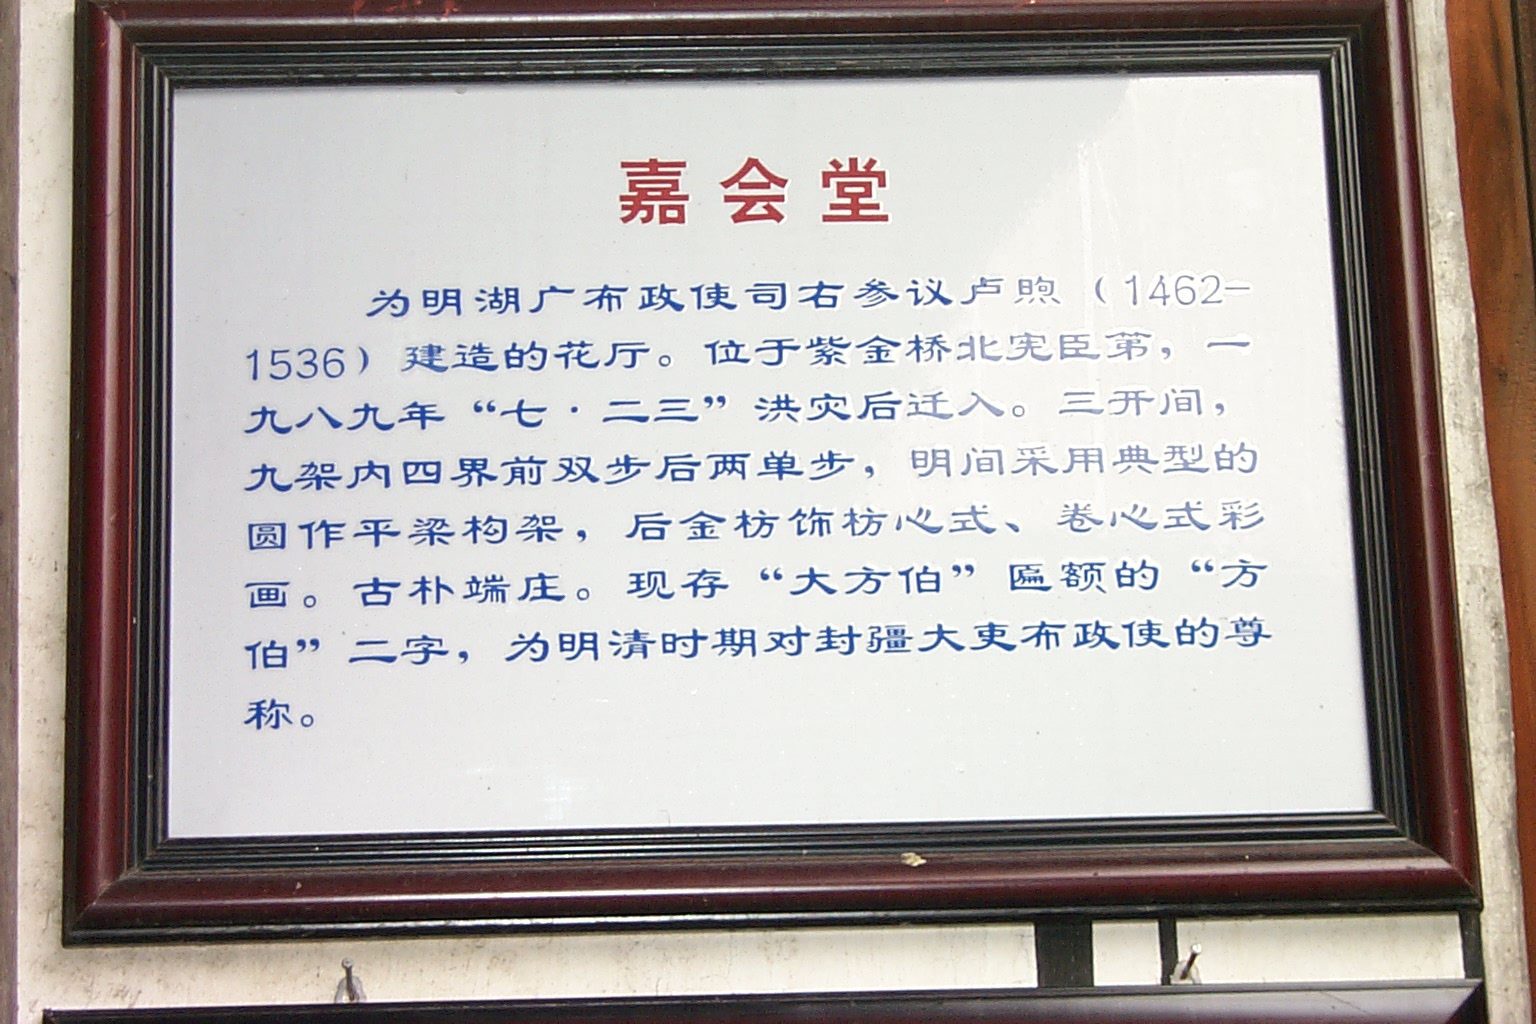 嘉会堂
为明湖广布政使司右参议卢煦（1462-
1536）建造的花厅。位于紫金桥北宪臣第，一
九八九年“七·二三”洪灾后迁入。三开间，
九架内四界前双步后两单步，明间采用典型的
圆作平梁构架，后金枋饰枋心式、卷心式彩
画。古朴端庄。现存“大方伯”匾额的“方
伯”二字，为明清时期对封疆大吏布政使的尊
称。